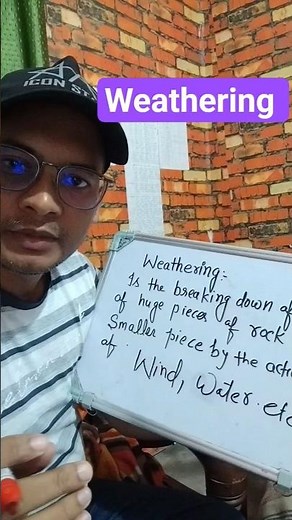 ICON
Weathering
Weathering:-
Is the breaking down of
of huge pieces of rock
Smaller piece by the
of.
Wind, Water. etc